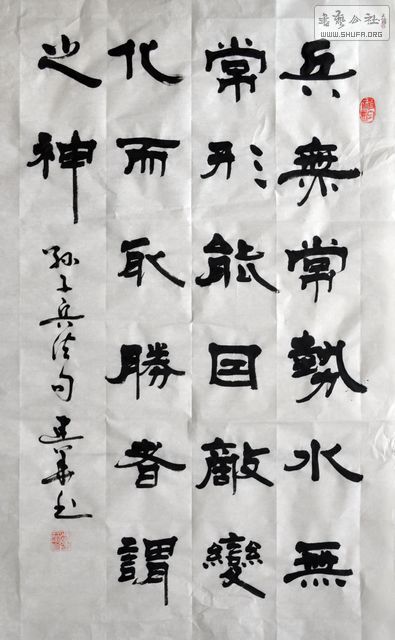 書藝公社
WWW.SHUFA.ORG
兵無常勢水無
常形能因敵變
化而取勝者謂
之神
孙子兵法句建华书